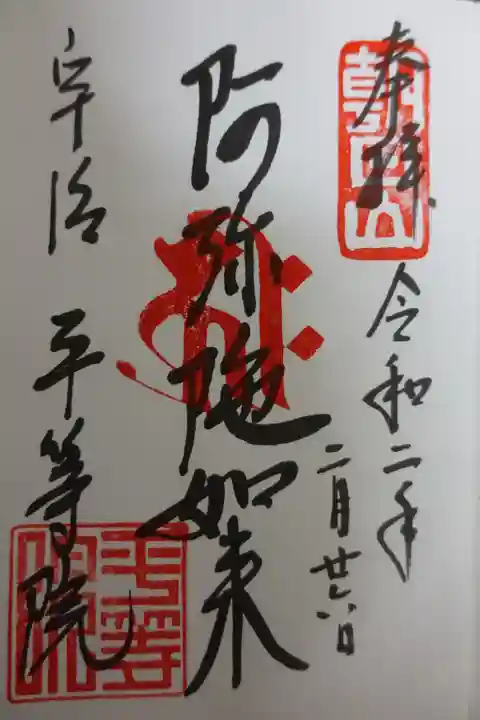 奉拝
朝日山
令和二年
二月廿六日
阿弥陀如来
宇治 平等院
平等院印